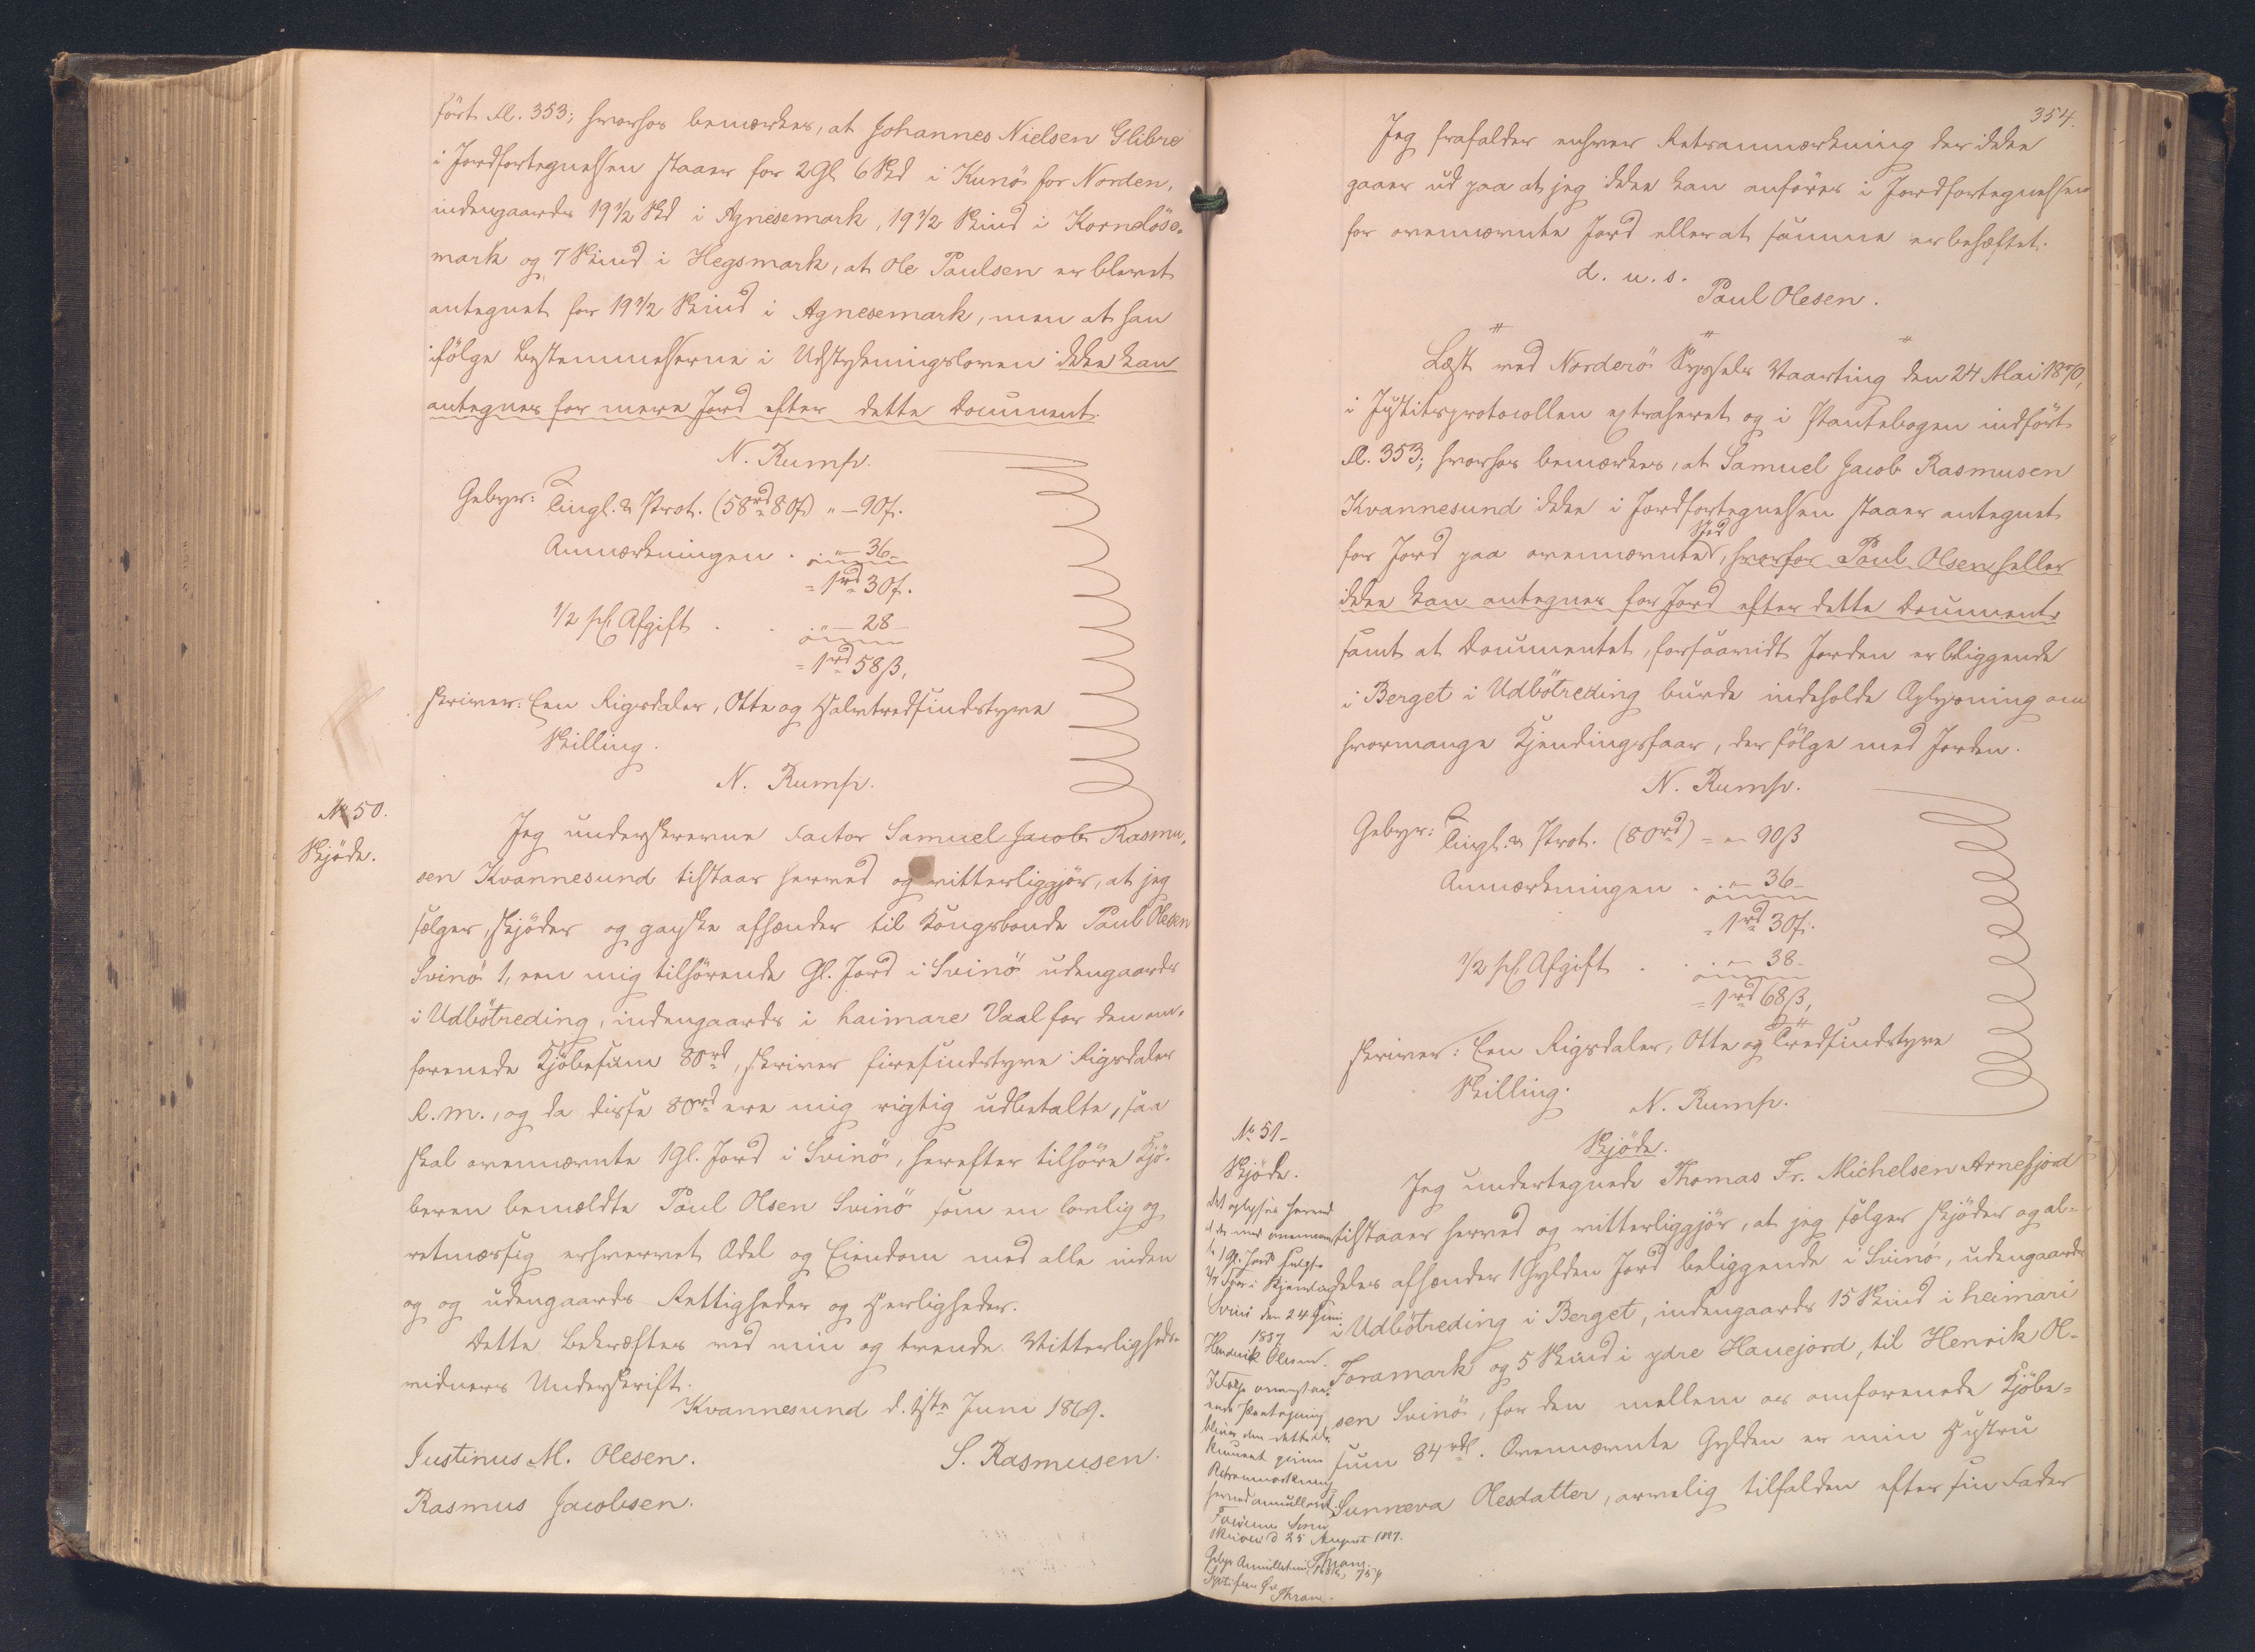 ført fl. 353; hvorhos bemærkes, at Johannes Nielsen Glibre
i Jordfortegnelsen staaer for 2 Gl 6 Skd i Kunö for Norden,
indengaards 19 1/2 Skd i Agnesemark, 19 1/2 Skind i Korndöse-
mark og 7 Skind i Hegsmark, at Ole Paulsen er blevet
antegnet for 19 1/2 Skind i Agnesemark, men at han
ifölge Bestemmelserne i Udstykningsloven ikke kan
antegnes for mere Jord efter dette Document.
N. Rump.
Gebyr: Tingl. & Prot. (58rd 80f) " - 90f.
Anmærkningen . . " - 36 -
= 1rd 30f.
1/2 pCt Afgift . . " - 28 -
= 1rd 58ß,
skriver: Een Rigsdaler, Otte og Halvtredsindstyve
Skilling.
N. Rump.
No 50.
Skjöde.
Jeg underskrevne Factor Samuel Jacob Rasmu-
sen Kvannesund tilstaar herved og vitterliggjör, at jeg
sælger, skjöder og ganske afhænder til Kongsbonde Paul Olesen
Svinö 1, een mig tilhörende Gl. Jord i Svinö udengaards
i Udbötreding, indengaards i haimare Vaal for den om-
forenede Kjöbesum 80rd, skriver firesindstyve Rigsdaler
R.M., og da disse 80rd ere mig rigtig udbetalte, saa
skal ovennævnte 1 Gl. Jord i Svinö, herefter tilhöre Kjö-
beren bemældte Paul Olsen Svinö som en lovlig og
retmæssig erhvervet Odel og Eiendom med alle inden
og og udengaards Rettigheder og Herligheder.
Dette Bekræftes ved min og trende Vitterligheds-
vidners Underskrift.
Kvannesund d. 1ste Juni 1869.
Justinus M. Olesen. S. Rasmusen.
Rasmus Jacobsen.
354.
Jeg frafalder enhver Retsanmærkning der ikke
gaaer ud paa at jeg ikke kan anföres i Jordfortegnelsen
for ovennævnte Jord eller at samme er behæftet.
d. u. s.
Paul Olesen.
Læst ved Norderö Syssels Vaarting den 24 Mai 1870,
i Justitsprotocollen extraheret og i Pantebogen indfört
fl. 353; hvorhos bemærkes, at Samuel Jacob Rasmusen
Kvannesund ikke i Jordfortegnelsen staaer antegnet
for Jord paa ovennævnte Sted, hvorfor Paul Olsen heller
ikke kan antegnes for Jord efter dette Document
samt at Documentet, forsaavidt Jorden er bliggende
i Berget i Udbötreding burde indeholde Oplysning om
hvormange Kjendingsfaar, der fölge med Jorden.
N. Rump.
Gebyr: Tingl. & Prot. (80rd) = " - 90ß
Anmærkningen . . " - 36 -
= 1rd 30f.
1/2 pCt Afgift . . " - 38 -
= 1rd 68ß,
skriver: Een Rigsdaler, Otte og Tredsindstyve
Skilling.
N. Rump.
No 51 -
Skjöde.
Det oplyses herved
at der med ovennævn-
te 1 Gl. Jord fulgte
Svinö den 24 Juni
1887
Hendrik Olesen.
Ifölge ovenstaa-
ende
bliver den dette Do-
kument givne
Retsanmærkning
herved annulleret.
Færöerne Soren-
skriveri d 25 August 1887.
Thram.
Thram.
Skjöde.
Jeg undertegnede Thomas Fr. Michelsen Arnefjord
tilstaaer herved og vitterliggjör, at jeg sælger skjöder og al-
deles afhænder 1 Gylden Jord beliggende i Svinö, udengaards
i Udbötreding i Berget, indengaards 15 Skind i heimari
Foramark og 5 Skind i ydre Hauejord, til Henrik Ol-
sen Svinö, for den mellem os omforenede Kjöbe-
sum 84 rdl. Ovennævnte Gylden er min Hustru
Sunneva Olesdatter, arvelig tilfalden efter sin Fader